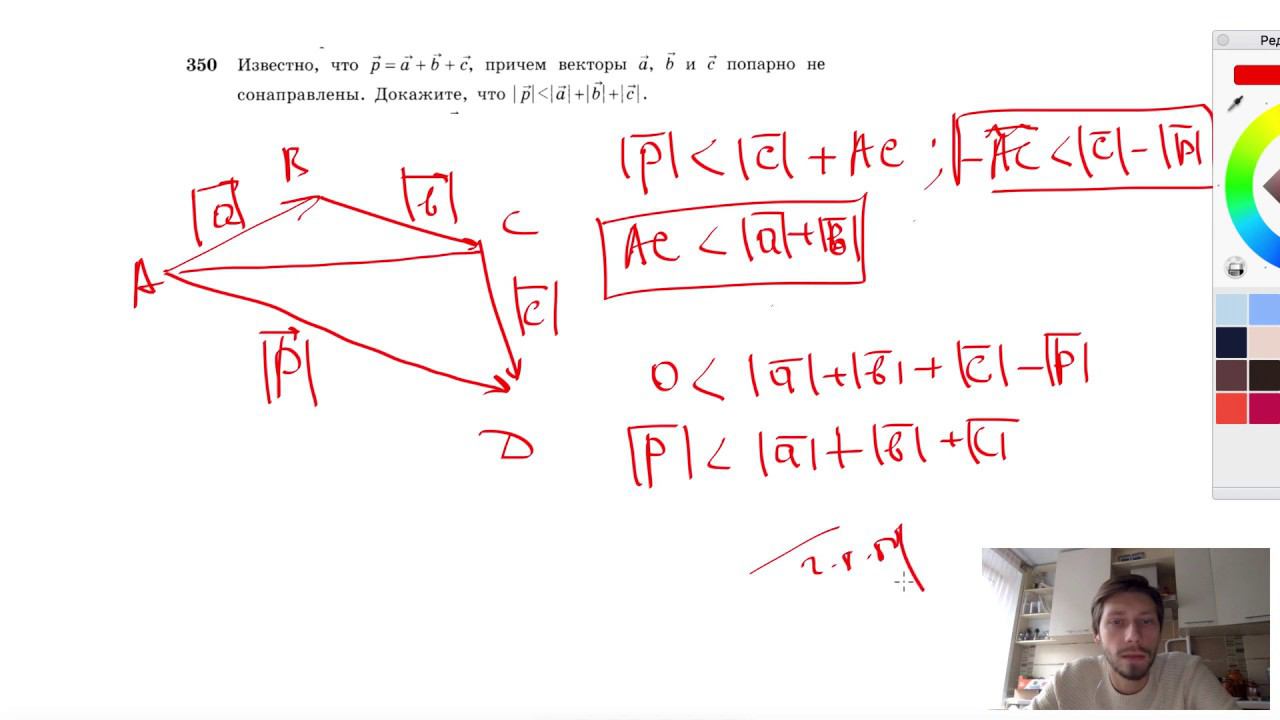 350 Известно, что p⃗ = a⃗ + b⃗ + c⃗, причем векторы a⃗, b⃗ и c⃗ попарно не
сонаправлены. Докажите, что |p⃗|<|a⃗|+|b⃗|+|c⃗|.
B
|a⃗|
|b⃗|
C
A
|c̅|
|p⃗|
D
|p̅| < |c̅| + AC ; -AC < |c̅| - |p̅|
AC < |a̅| + |b̅|
0 < |a̅| + |b̅| + |c̅| - |p̅|
|p̅| < |a̅| + |b̅| + |c̅|
Ред